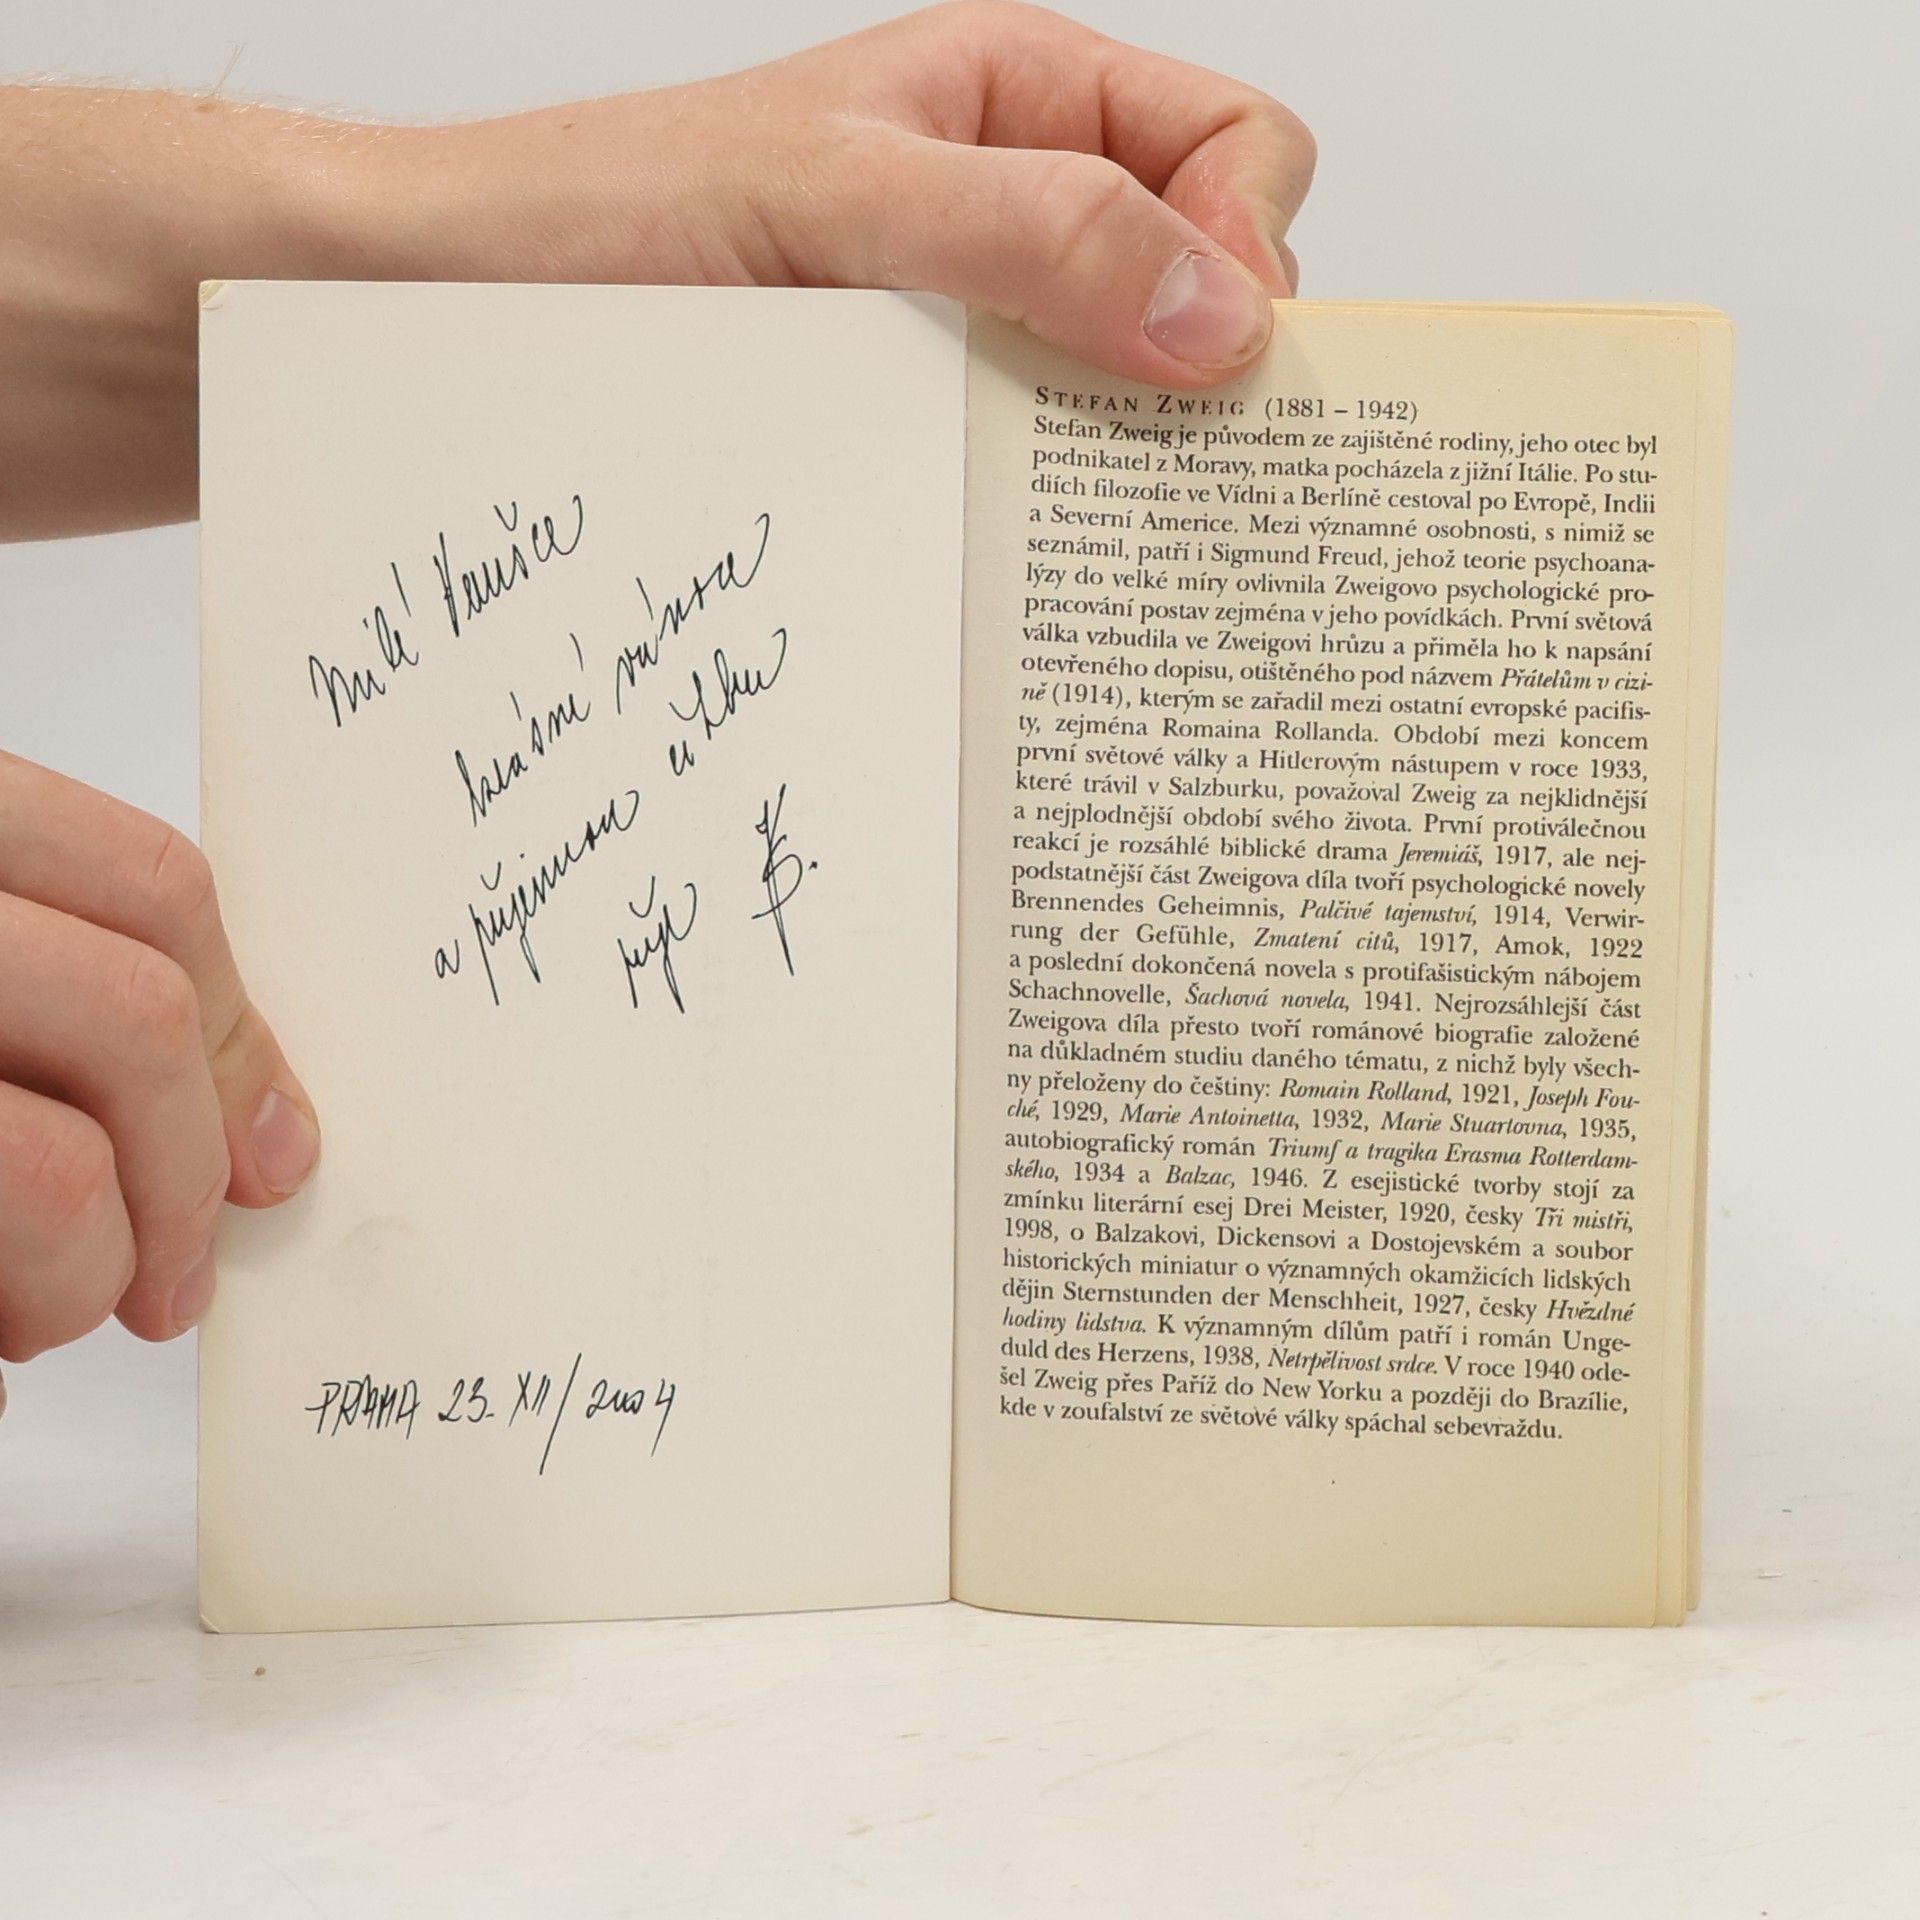 Milé Vanušce
krásné vánoce
a příjemnou četbu
přeje K.
PRAHA 23. XII/2004
STEFAN ZWEIG (1881 – 1942)
Stefan Zweig je původem ze zajištěné rodiny, jeho otec byl
podnikatel z Moravy, matka pocházela z jižní Itálie. Po stu-
diích filozofie ve Vídni a Berlíně cestoval po Evropě, Indii
a Severní Americe. Mezi významné osobnosti, s nimiž se
seznámil, patří i Sigmund Freud, jehož teorie psychoana-
lýzy do velké míry ovlivnila Zweigovo psychologické pro-
pracování postav zejména v jeho povídkách. První světová
válka vzbudila ve Zweigovi hrůzu a přiměla ho k napsání
otevřeného dopisu, otištěného pod názvem Přátelům v cizi-
ně (1914), kterým se zařadil mezi ostatní evropské pacifis-
ty, zejména Romaina Rollanda. Období mezi koncem
první světové války a Hitlerovým nástupem v roce 1933,
které trávil v Salzburku, považoval Zweig za nejklidnější
a nejplodnější období svého života. První protiválečnou
reakcí je rozsáhlé biblické drama Jeremiáš, 1917, ale nej-
podstatnější část Zweigova díla tvoří psychologické novely
Brennendes Geheimnis, Palčivé tajemství, 1914, Verwir-
rung der Gefühle, Zmatení citů, 1917, Amok, 1922
a poslední dokončená novela s protifašistickým nábojem
Schachnovelle, Šachová novela, 1941. Nejrozsáhlejší část
Zweigova díla přesto tvoří románové biografie založené
na důkladném studiu daného tématu, z nichž byly všech-
ny přeloženy do češtiny: Romain Rolland, 1921, Joseph Fou-
ché, 1929, Marie Antoinetta, 1932, Marie Stuartovna, 1935,
autobiografický román Triumf a tragika Erasma Rotterdam-
ského, 1934 a Balzac, 1946. Z esejistické tvorby stojí za
zmínku literární esej Drei Meister, 1920, česky Tři mistři,
1998, o Balzakovi, Dickensovi a Dostojevském a soubor
historických miniatur o významných okamžicích lidských
dějin Sternstunden der Menschheit, 1927, česky Hvězdné
hodiny lidstva. K významným dílům patří i román Unge-
duld des Herzens, 1938, Netrpělivost srdce. V roce 1940 ode-
šel Zweig přes Paříž do New Yorku a později do Brazílie,
kde v zoufalství ze světové války spáchal sebevraždu.